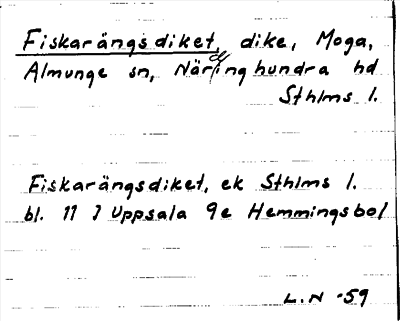 Fiskarängsdiket, dike, Moga,
Almunge sn, Närdinghundra hd
Sthlms l.
Fiskarängsdiket, ek Sthlms l.
bl. 11 I Uppsala 9e Hemmingsbol
L.N -59